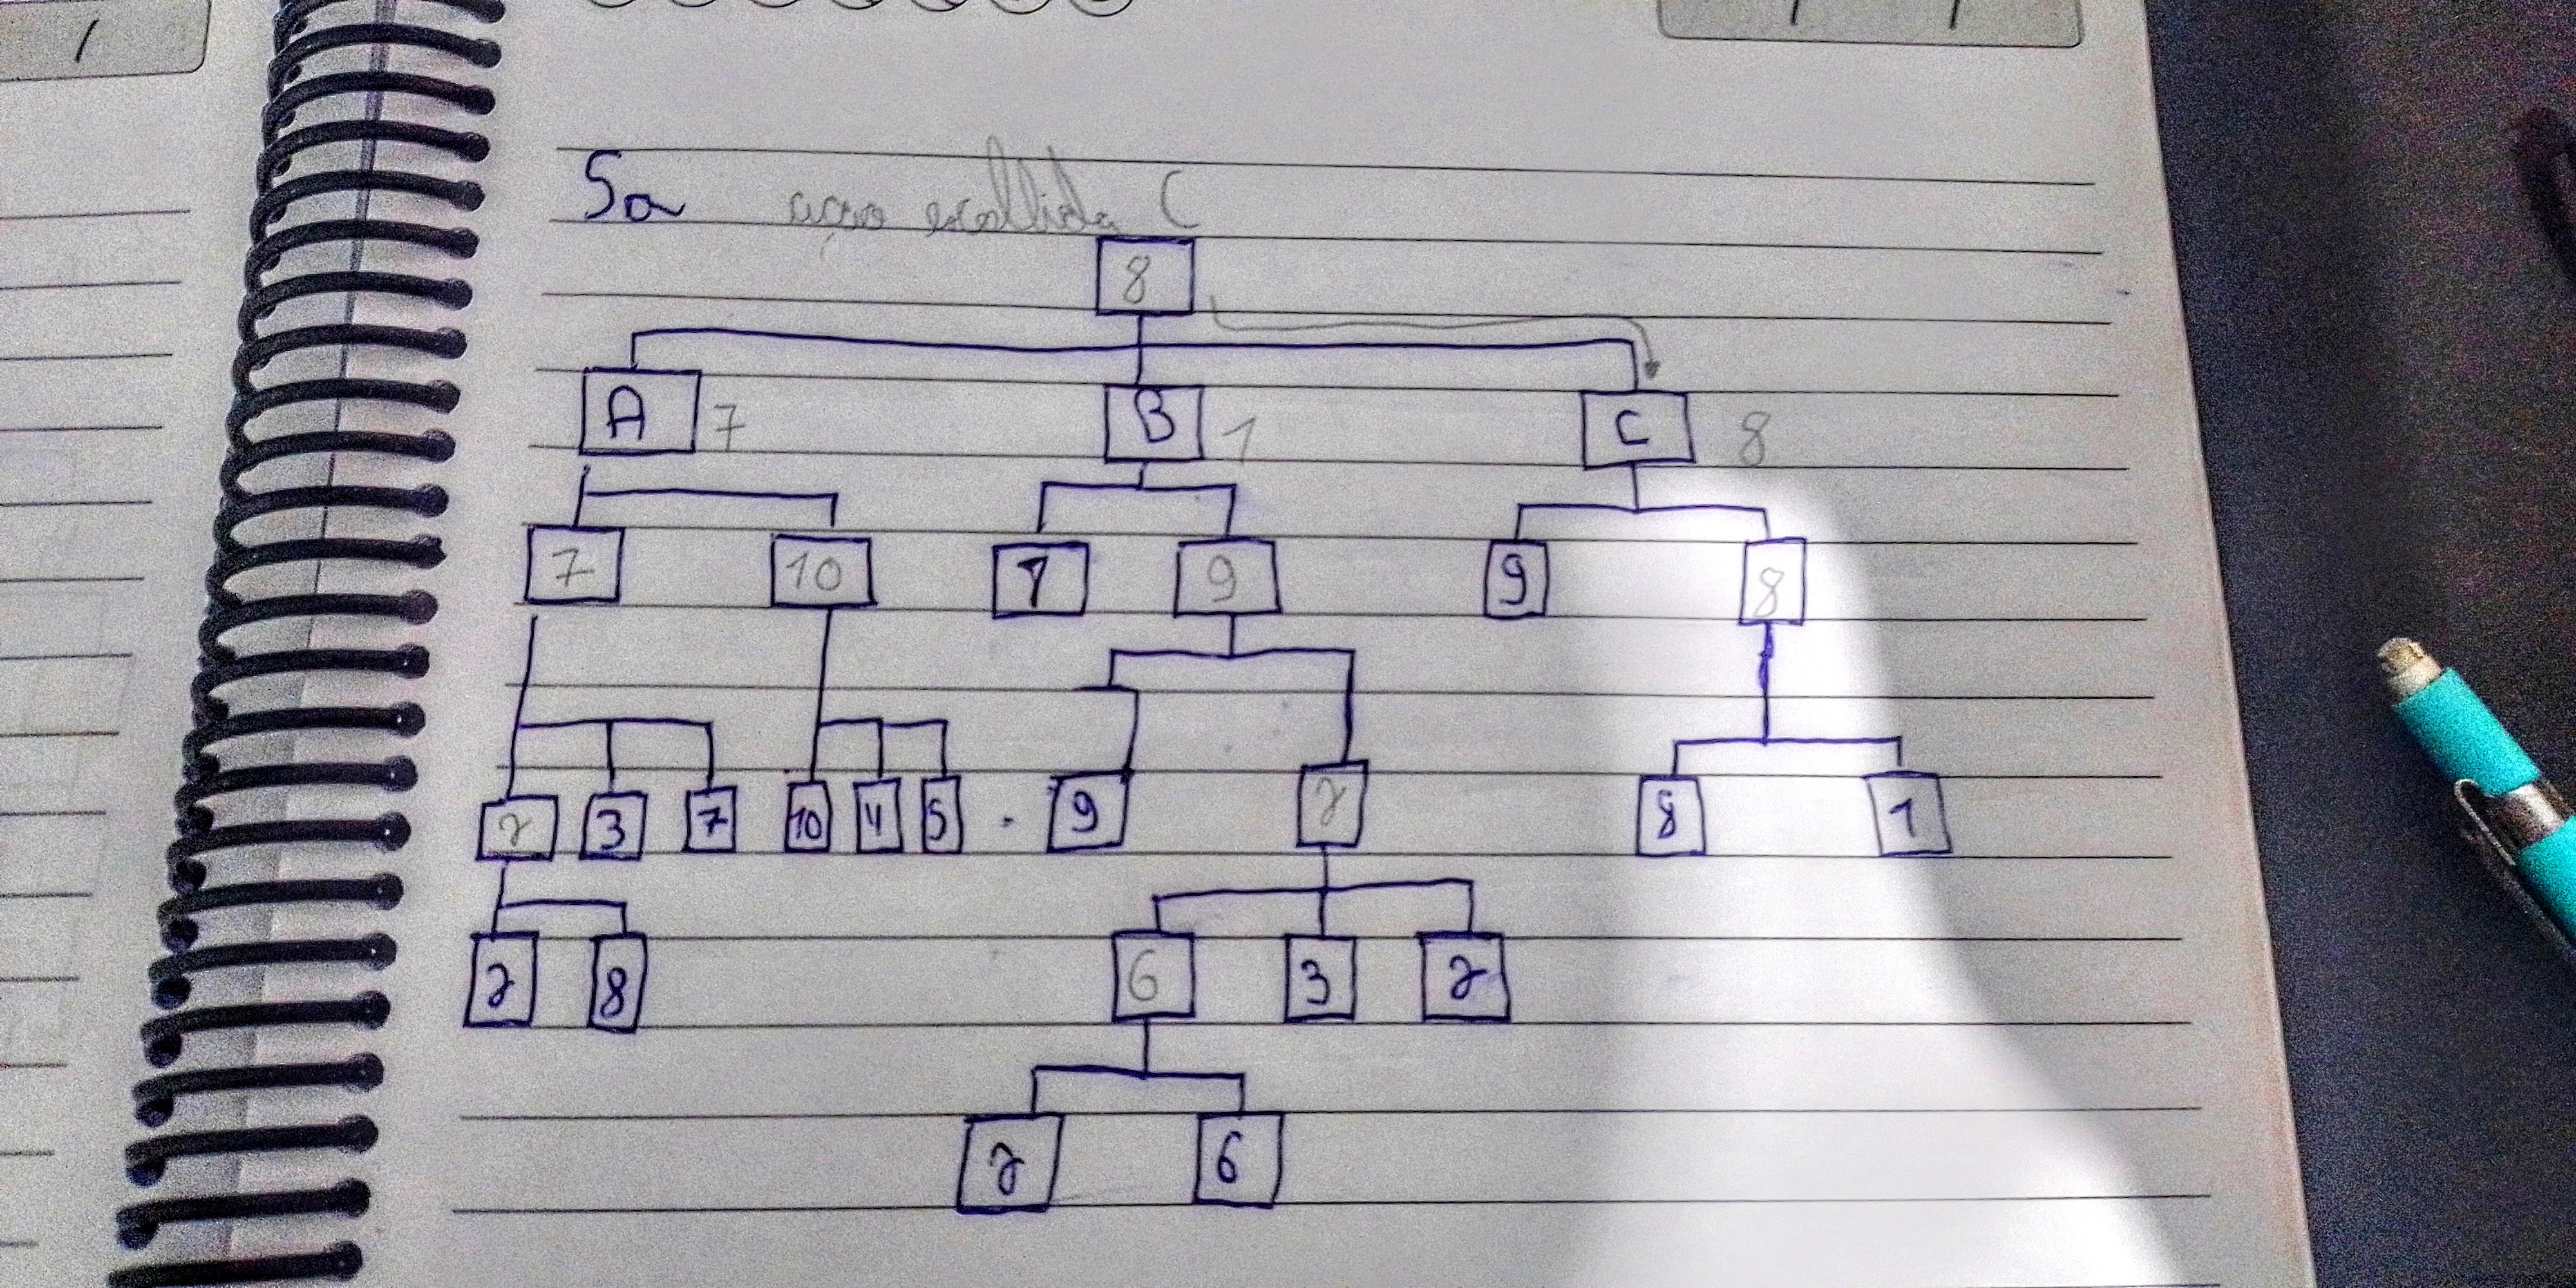 5a ação escolhida C
8
A 7 B 1 C 8
7 10 1 9 9 8
2 3 7 10 4 5 . 9 2 8 1
2 8 6 3 2
2 6